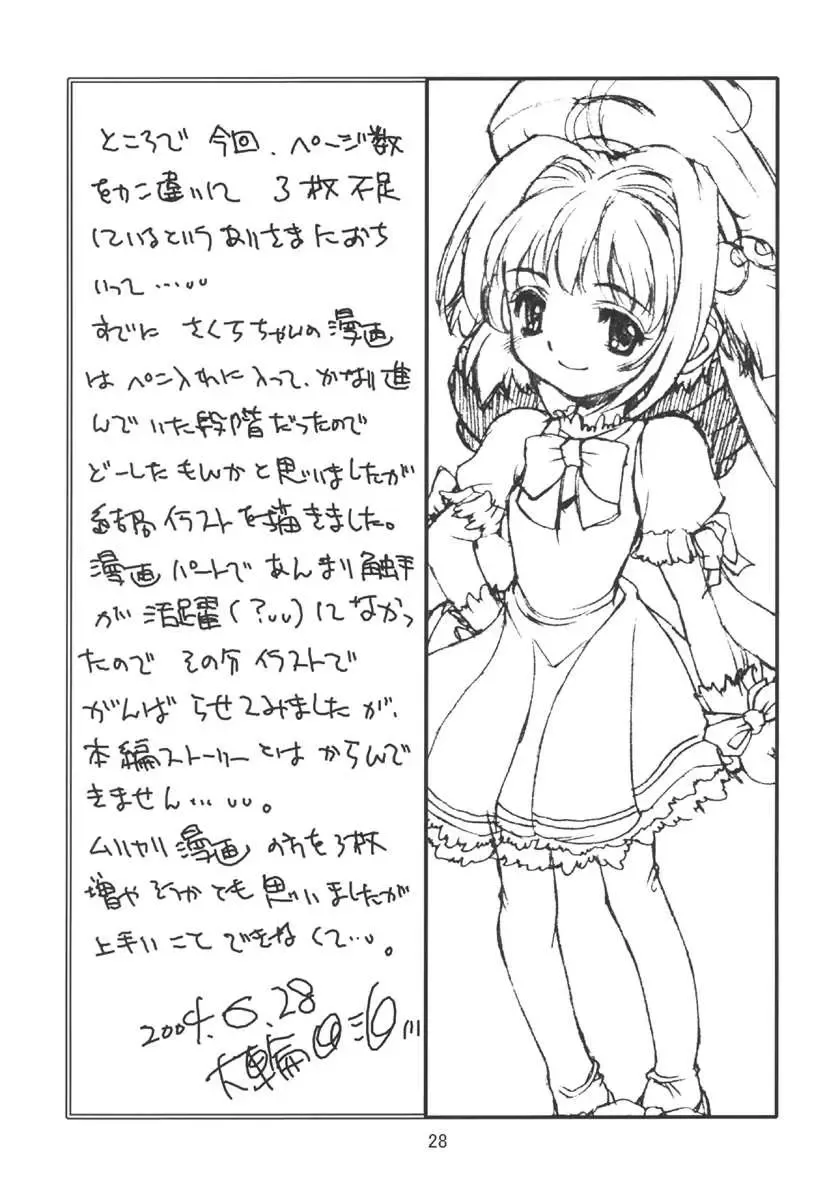 ところで 今回、ページ数
をかん違いして 3枚不足
しているというありさまにおち
いって…。。
すでに さくらちゃんの漫画
は ペン入れに入って、かなり進
んでいた段階だったので
どーしたもんかと思いましたが
結局イラストを描きました。
漫画パートであんまり触手
が活躍(?。。)しなかっ
たので その分イラストで
がんばらせてみましたが、
本編ストーリーとはからんで
きません…。。。
ムリヤリ漫画の方を3枚
増やそうかとも思いましたが
上手いことできなくて…。。
2004.6.28
28